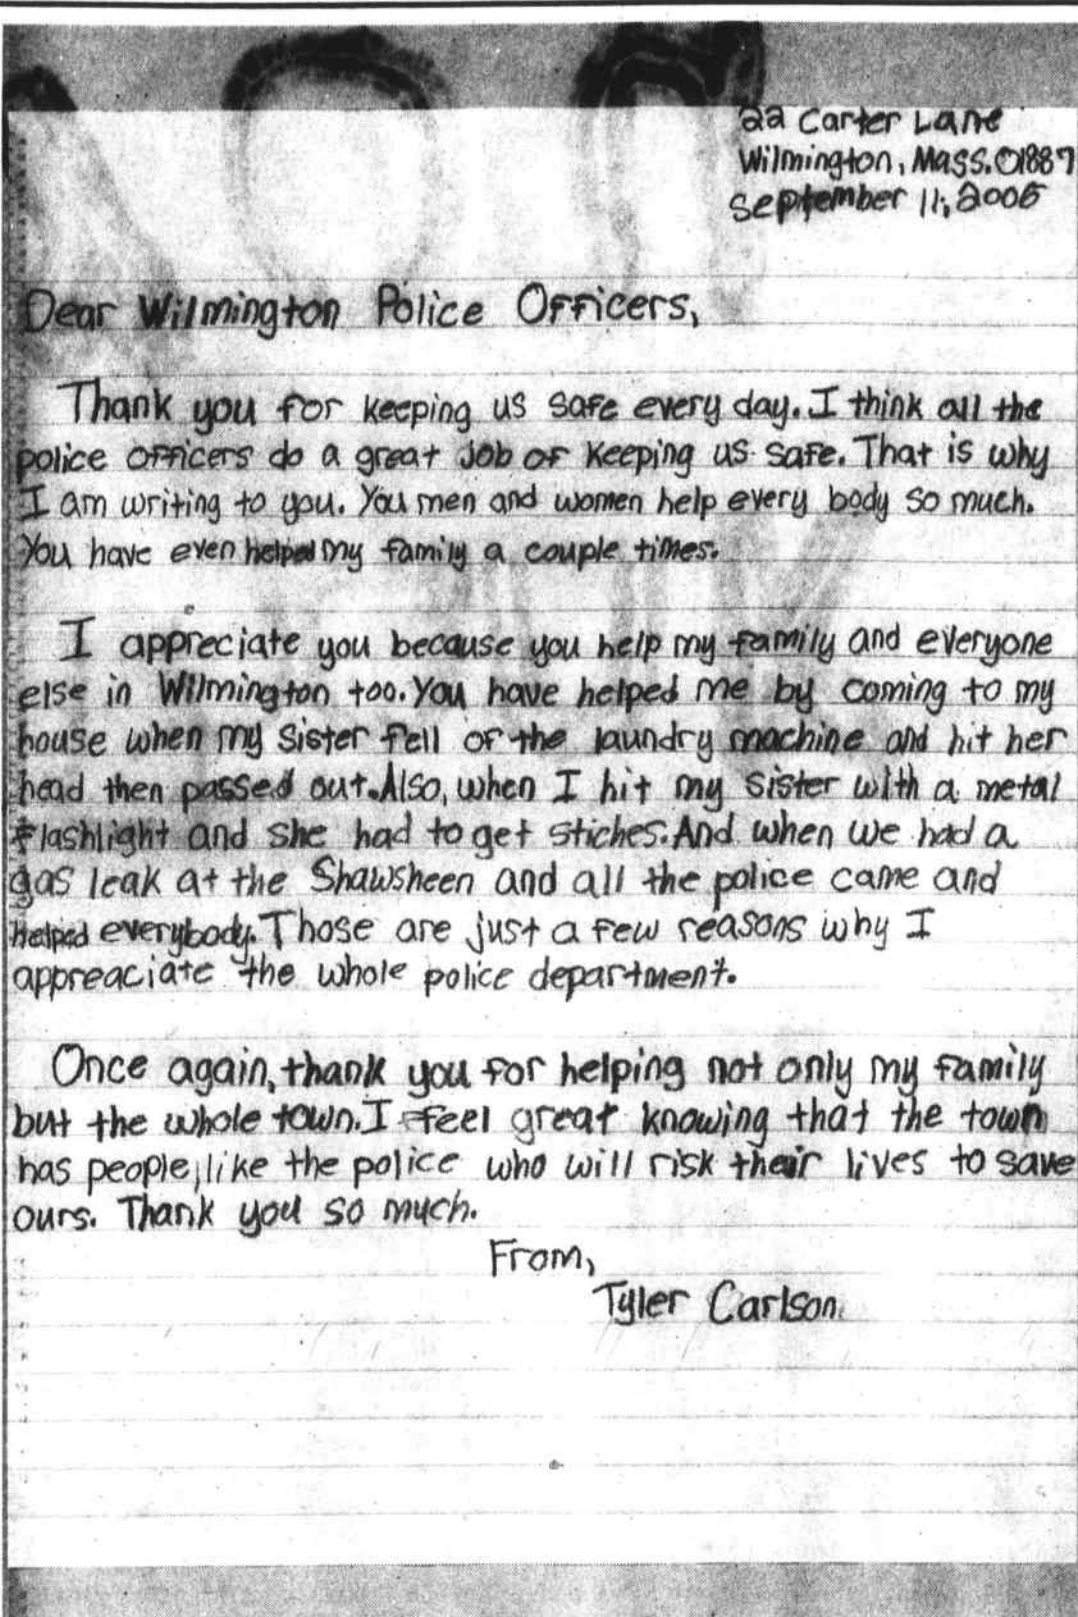 22 Carter Lane
Wilmington, Mass. 01887
September 11, 2006
Dear Wilmington Police Officers,
Thank you for keeping us safe every day. I think all the
police officers do a great job of keeping us safe. That is why
I am writing to you. You men and women help every body so much.
You have even helped my family a couple times.
I appreciate you because you help my family and everyone
else in Wilmington too. You have helped me by coming to my
house when my sister fell of the laundry machine and hit her
head then passed out. Also, when I hit my sister with a metal
flashlight and she had to get stiches. And when we had a
gas leak at the Shawsheen and all the police came and
helped everybody. Those are just a few reasons why I
appreaciate the whole police department.
Once again, thank you for helping not only my family
but the whole town. I feel great knowing that the town
has people, like the police who will risk their lives to save
ours. Thank you so much.
From,
Tyler Carlson